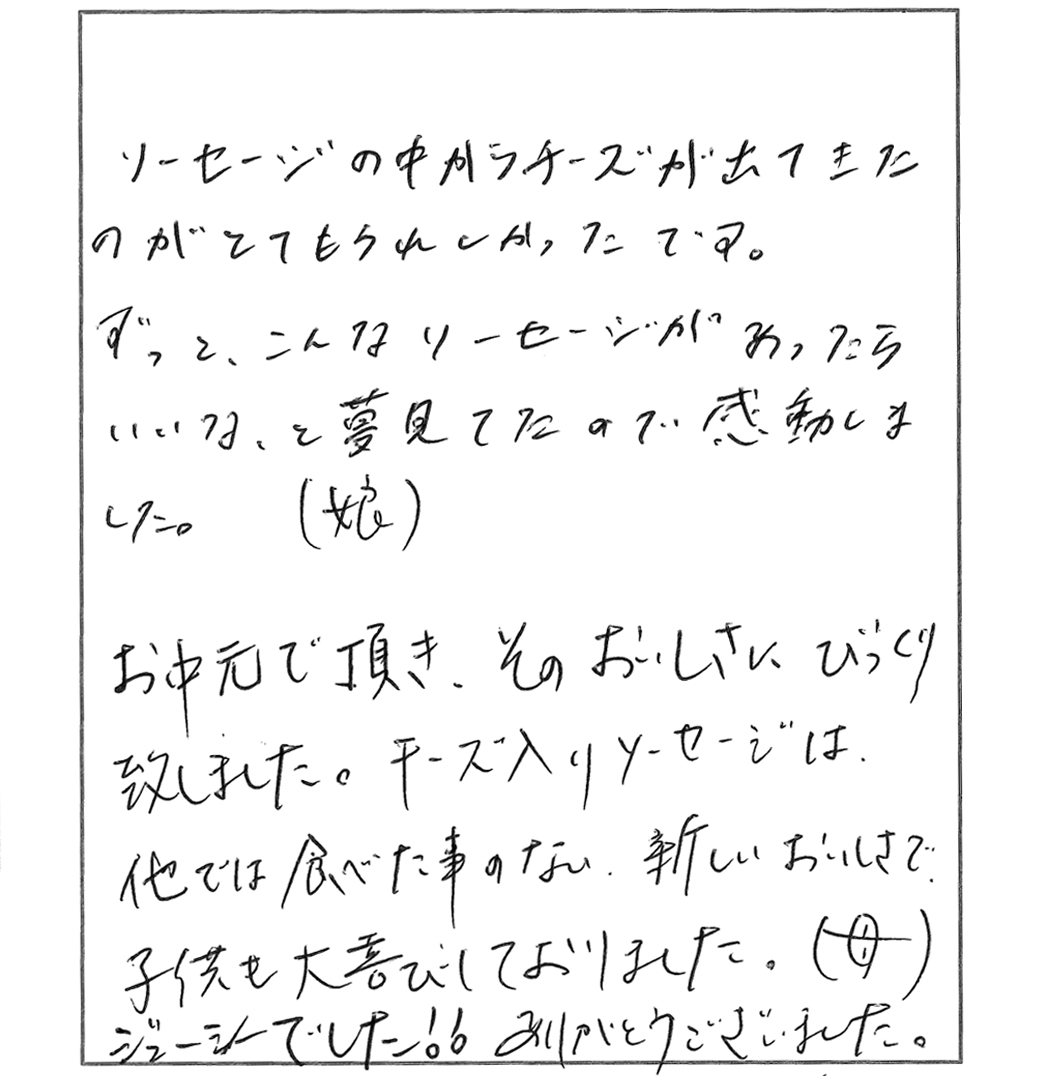 ソーセージの中からチーズが出てきた
のがとてもうれしかったです。
ずっと、こんなソーセージがあったら
いいな、と夢見てたので感動しま
した。　(娘)
お中元で頂き、そのおいしさにびっくり
致しました。チーズ入りソーセージは、
他では食べた事のない、新しいおいしさで、
子供も大喜びしておりました。(母)
ジューシーでした!! ありがとうございました。